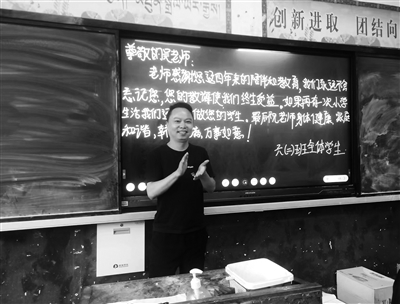 创新进取 团结向
尊敬的阮老师：
老师感谢您这四年来的陪伴和教育，我们永远不会
忘记您，您的教诲使我们终生受益，如果再有一次小学
生活我们还 做您的学生。最后祝老师身体健康，家庭
和谐， 万事如意！
六(二)班全体学生